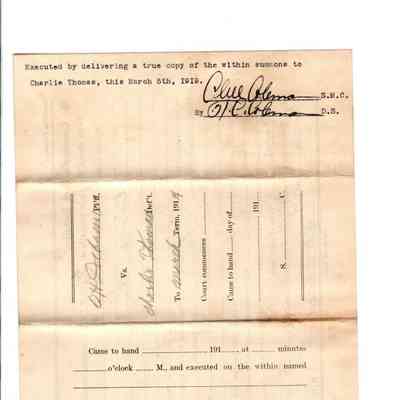 Executed by delivering a true copy of the within summons to
Charlie Thomas, this March 5th, 1919.
Clell Coleman S.M.C.
By H.C. Coleman D.S.
Pl'ff.
Vs.
Charlie Thomas Def't.
To March Term, 1919
Court commences
Came to hand day of
191
S. C.
Came to hand 191 , at minutes
o'clock M., and executed on the within named